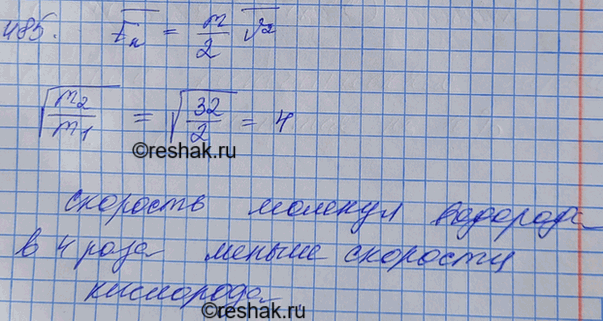 485. Eк = m/2 v²
√(m₂/m₁) = √(32/2) = 4
©reshak.ru
скорость молекул водорода
в 4 раза меньше скорости
кислорода
©reshak.ru